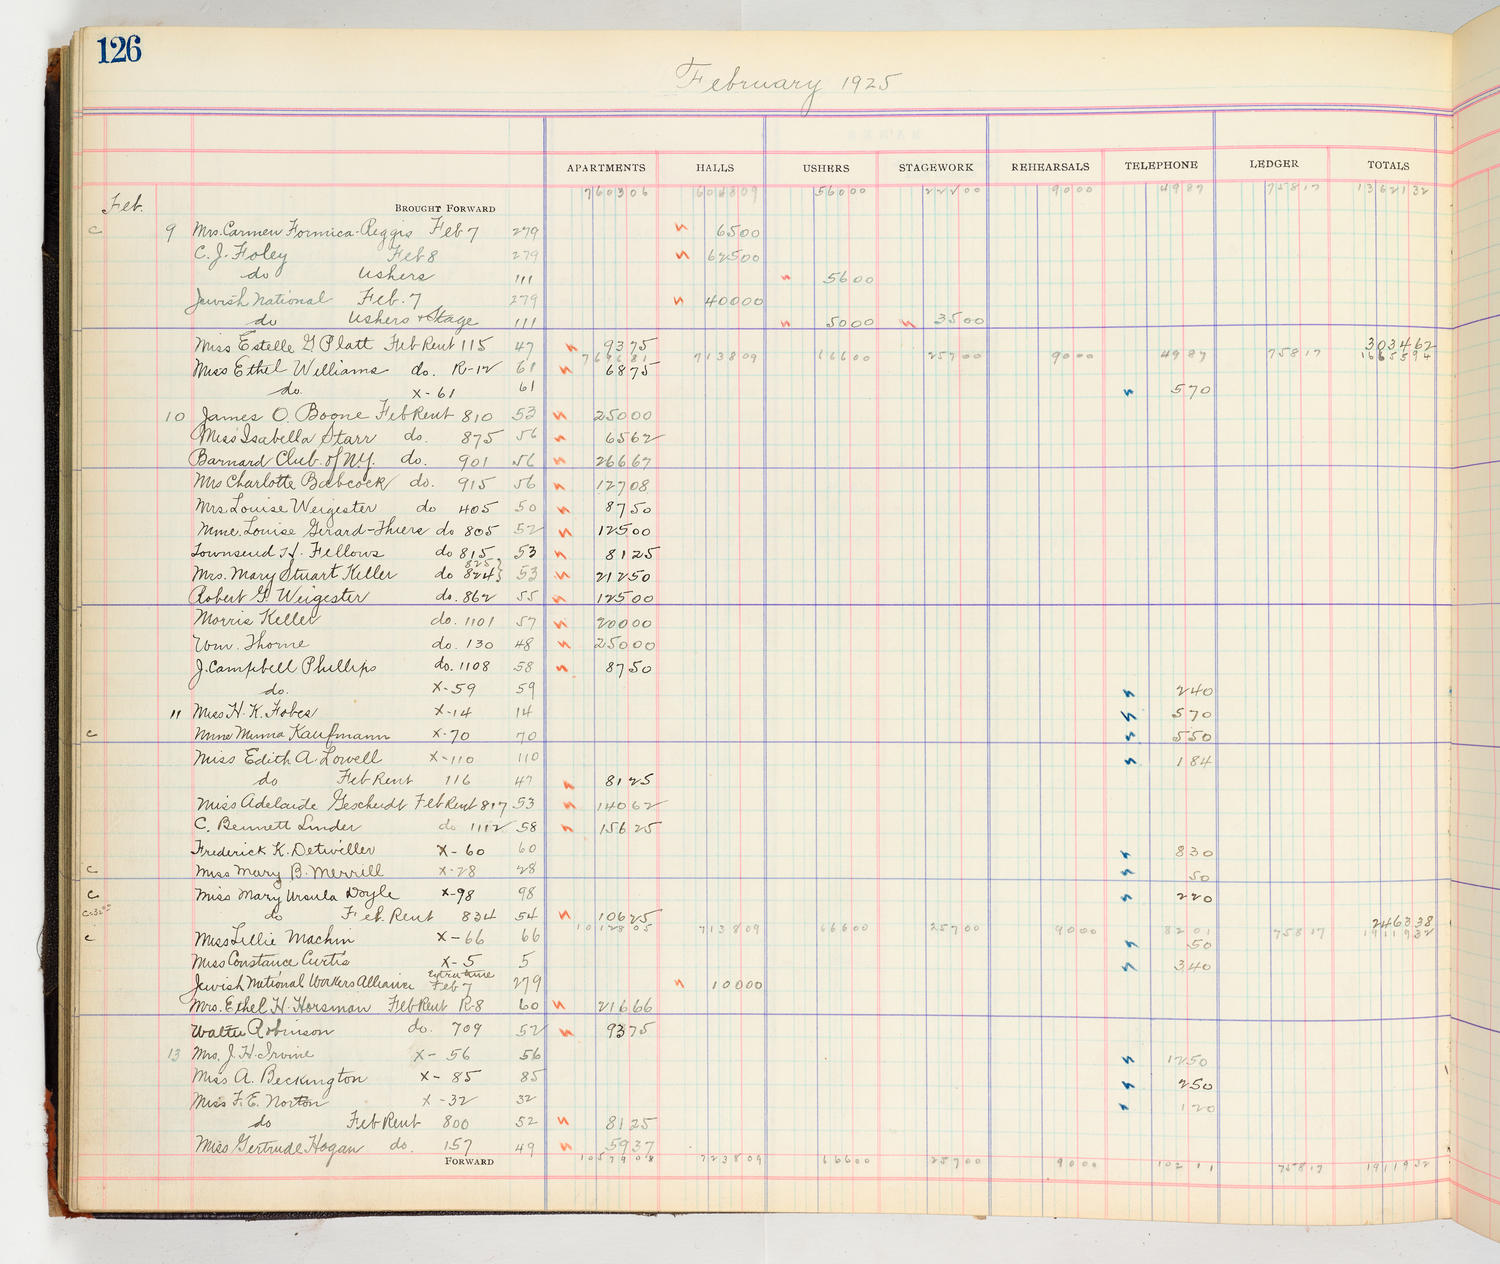 126
February 1925
APARTMENTS HALLS USHERS STAGEWORK REHEARSALS TELEPHONE LEDGER TOTALS
760306 604809 56000 22200 9000 4987 75817 1362132
Feb. BROUGHT FORWARD
c 9 Mrs. Carmen Formica-Reggis Feb 7 279 6500
C. J. Foley Feb 8 279 62500
do Ushers 111 5600
Jewish National Feb. 7 279 40000
do Ushers + Stage 111 5000 3500
Miss Estelle G Platt Feb Rent 115 47 9375 303462
769681 713809 66600 25700 9000 4987 75817 1665594
Miss Ethel Williams do. R-12 61 6875
do. X-61 61 570
10 James O. Boone Feb Rent 810 53 25000
Miss Isabella Starr do. 875 56 6562
Barnard Club of N.Y. do. 901 56 26667
Mrs Charlotte Babcock do. 915 56 12708
Mrs Louise Weigester do 405 50 8750
Mme. Louise Gerard-Thiers do 805 52 12500
Townsend H. Fellows do 815 53 8125
Mrs. Mary Stuart Keller do 825 824} 53 21250
Robert G. Weigester do. 862 55 12500
Morris Keller do. 1101 57 20000
Wm. Thorne do. 130 48 25000
J. Campbell Phillips do. 1108 58 8750
do. X-59 59 240
11 Miss H. K. Fobes X-14 14 570
c Mme Minna Kaufmann X-70 70 550
Miss Edith A. Lowell X-110 110 184
do Feb Rent 116 47 8125
Miss Adelaide Gescheidt Feb Rent 817 53 14062
C. Bennett Linder do 1112 58 15625
Frederick K. Detwiller X-60 60 830
c Miss Mary B. Merrill X-28 28 50
c Miss Mary Ursula Doyle X-98 98 220
do Feb. Rent 834 54 10625 246338
1012805 713809 66600 25700 9000 8201 75817 1911932
c Miss Lillie Machin X-66 66 50
Miss Constance Curtis X-5 5 340
Jewish National Workers Alliance Extra time Feb 7 279 10000
Mrs. Ethel H. Horsman Feb Rent R-8 60 21666
Walter Robinson do. 709 52 9375
13 Mrs. J. H. Irvine X-56 56 1250
Miss A. Beckington X-85 85 250
Miss F. E. Norton X-32 32 120
do Feb Rent 800 52 8125
Miss Gertrude Hogan do. 157 49 5937
FORWARD 1057908 723809 66600 25700 9000 10211 75817 1911932